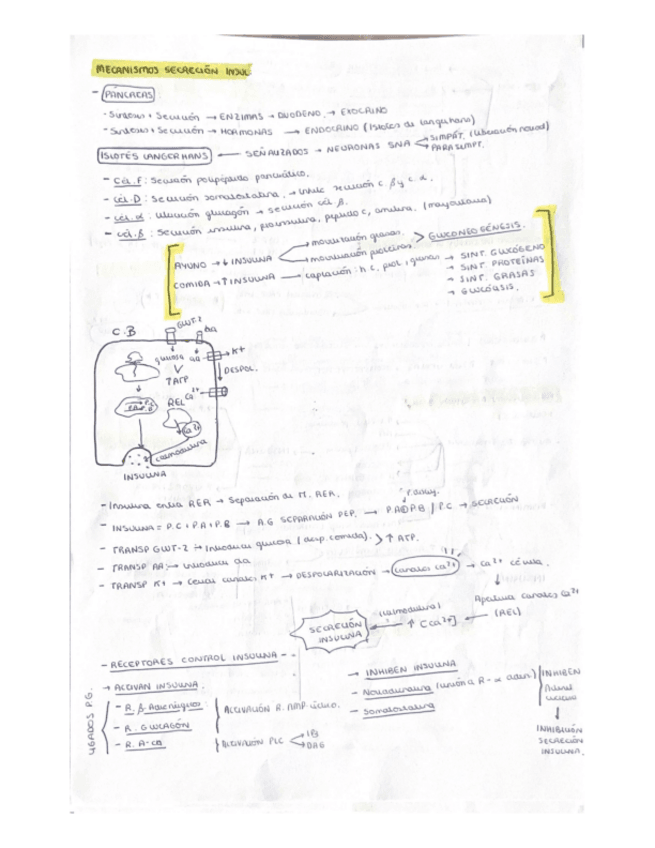 MECANISMOS SECRECIÓN INSUL.
- PÁNCREAS:
· Síntesis + Secreción → ENZIMAS → DUODENO → EXOCRINO
· Síntesis + Secreción → HORMONAS → ENDOCRINO (Islotes de Langerhans)
ISLOTES LANGERHANS ← SEÑALIZADOS → NEURONAS SNA
SIMPÁT. (liberación noradr)
PARASIMPT.
- Cél. F: Secreción polipéptido pancreático.
- Cél. D: Secreción somatostatina, → inhibe secreción c. β y c. α.
- Cél. α: Liberación glucagón → secreción cél β.
- Cél. β: Secreción insulina, proinsulina, péptido c, amilina. (mayoritario)
AYUNO → ↓ INSULINA
movilización grasas.
movilización proteínas
> GLUCONEOGÉNESIS.
COMIDA → ↑ INSULINA → captación: h c, prot, grasas
→ SINT. GLUCÓGENO
→ SINT. PROTEÍNAS
→ SINT. GRASAS
→ GLUCÓLISIS.
C.B
GLUT-2
aa
glucosa aa
K+
↑ATP
DESPOL.
REL
Ca2+
Ca2+
calmodulina
INSULINA
- Insulina entra RER → Separación de M. RER.
- INSULINA = P.C + P.A + P.B → A.G SEPARACIÓN PEP. → P.A P.B / P.C → SECRECIÓN
- TRANSP GLUT-2 → Introducir glucosa (desp. comida). > ↑ ATP.
- TRANSP AA: → introducir aa
- TRANSP K+ → Cerrar canales K+ → DESPOLARIZACIÓN → canales Ca2+ → Ca2+ célula.
Apertura canales Ca2+
(REL)
↑ [Ca2+]
(calmodulina)
SECRECIÓN
INSULINA
- RECEPTORES CONTROL INSULINA -
LIGADOS P.G.
→ ACTIVAN INSULINA.
- R. β Adrenérgicos
- R. GLUCAGÓN
ACTIVACIÓN R. AMP cíclico.
ACTIVACIÓN PLC
IP3
DAG
→ INHIBEN INSULINA
- Noradrenalina (unión a R-α adren.)
- Somatostatina
INHIBEN
Adenil
ciclasa
INHIBICIÓN
SECRECIÓN
INSULINA.